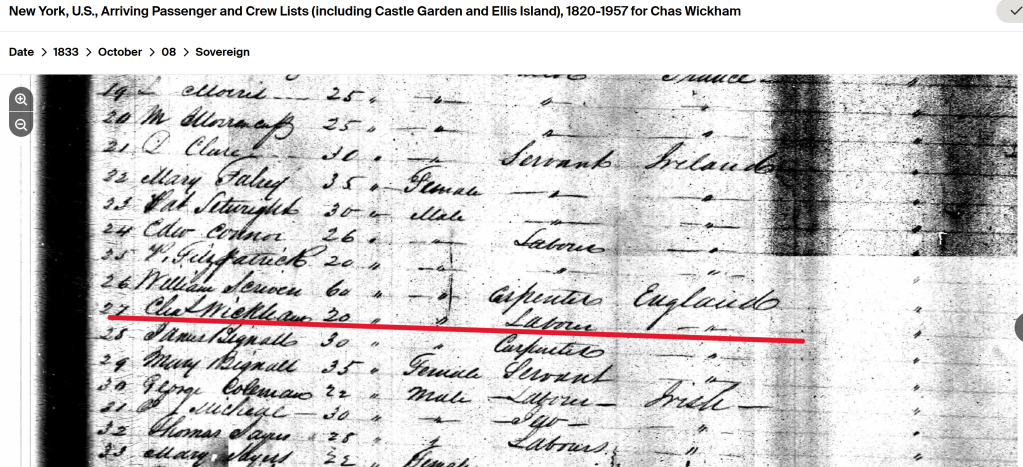 New York, U.S., Arriving Passenger and Crew Lists (including Castle Garden and Ellis Island), 1820-1957 for Chas Wickham
Date > 1833 > October > 08 > Sovereign
France
19 Morris 25 "
20 M 25 "
21 Clare 30 " Servant Ireland
22 Mary Fahey 35 " Female
23 Pat 30 " Male
24 Edw Connor 26 " Labour
25 P. Fitzpatrick 20 "
26 William Scriven 60 " Carpenter England
27 Chas Wickham 20 " Labour "
28 James Bignall 30 " Carpenter "
29 Mary Bignall 35 " Female Servant "
30 George Coleman 22 " Male Labour Irish
31 30 "
32 Thomas 28 " Labours
33 Mary 22 " Female